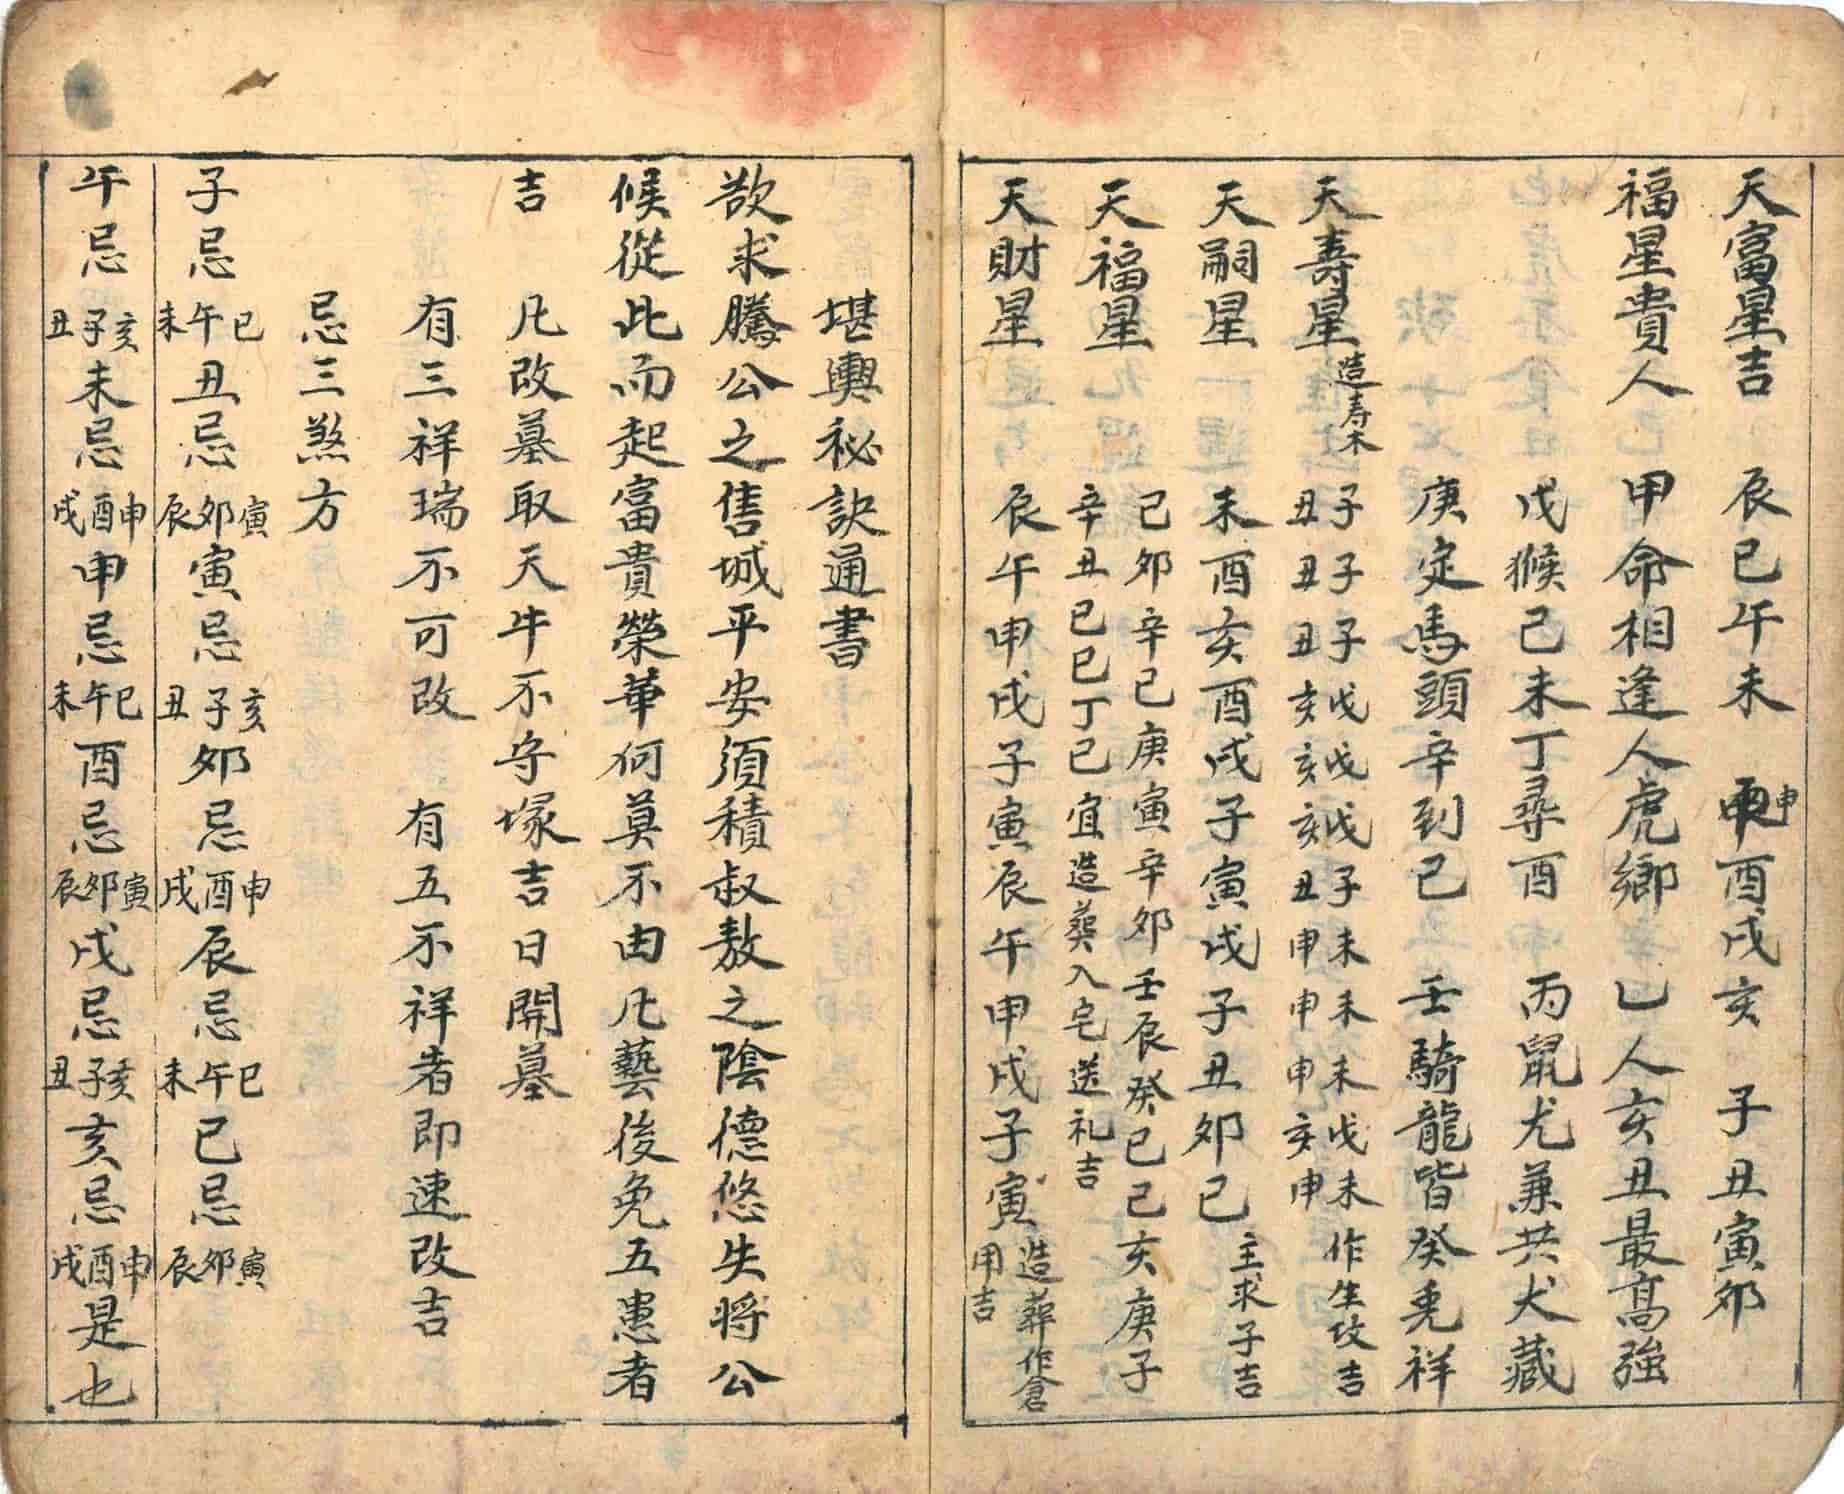 天富星吉　辰巳午未　申酉戌亥　子丑寅卯
福星貴人　甲命相逢人虎鄉　乙人亥丑最高強
戊猴己未丁尋酉　丙鼠尤兼共犬藏
庚定馬頭辛到巳　壬騎龍背癸兎祥
天壽星　造寿木　子子子戊戊戊子未未未戊未　作生坟吉
丑丑丑亥亥亥丑申申申亥申
天嗣星　未酉亥酉戌子寅戌子丑卯巳　主求子吉
天福星　己卯辛巳庚寅辛卯壬辰癸巳己亥庚子
辛丑巳巳丁巳　宜造葬入宅送礼吉
天財星　辰午申戌子寅辰午申戌子寅　造葬作倉
用吉
堪輿秘訣通書
欲求騰公之售城平安須積叔敖之陰德悠失将公
候從此而起富貴榮華何莫不由凡藝後免五患者
吉　凡改墓取天牛不守塚吉日開墓
有三祥瑞不可改　有五不祥者即速改吉
忌三煞方
子忌巳午未丑忌寅卯辰寅忌亥子丑卯忌申酉戌辰忌巳午未巳忌寅卯辰
午忌亥子丑未忌申酉戌申忌巳午未酉忌寅卯辰戌忌亥子丑亥忌申酉戌是也